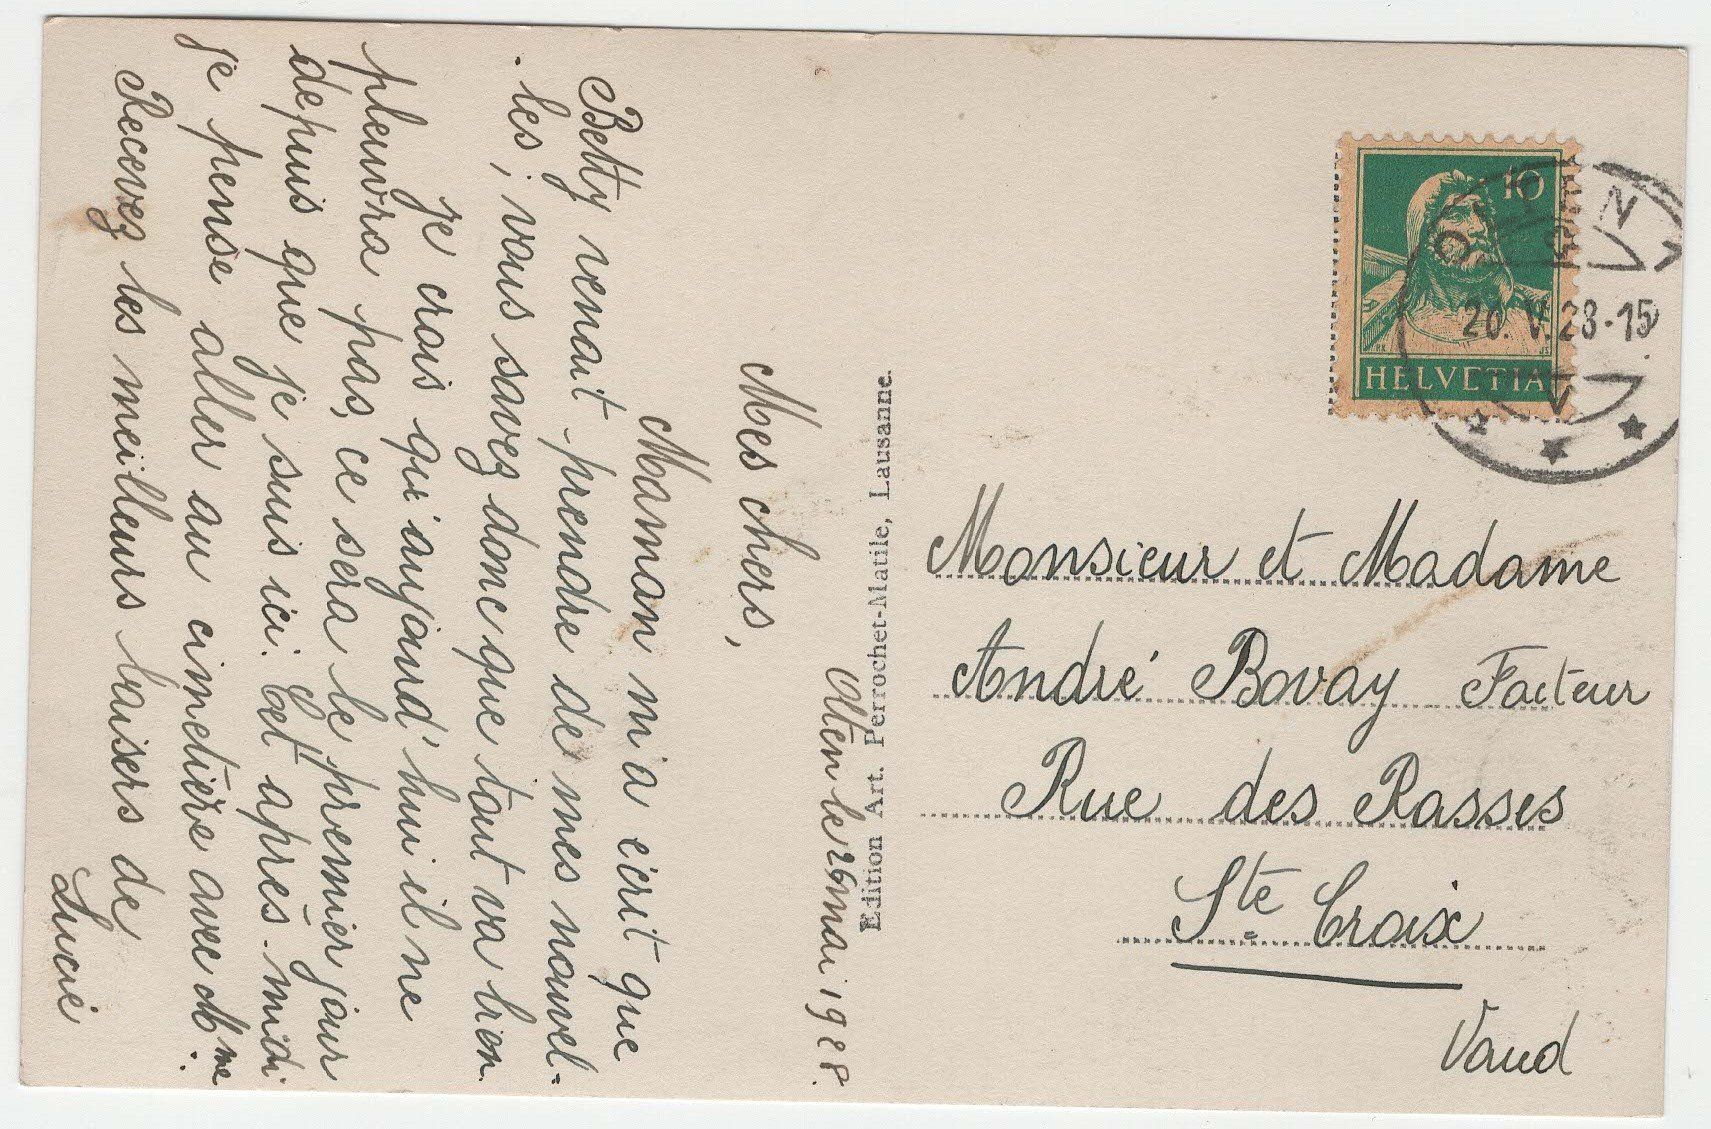 Olten le 26 mai 1928.
Mes chers,
Maman m'a écrit que
Betty venait prendre de mes nouvel=
les; vous savez donc que tout va bien.
Je crois qu'aujourd'hui il ne
pleuvra pas, ce sera le premier jour
depuis que je suis ici. Cet après-midi
je pense aller au cimetière avec Mme.
Recevez les meilleurs baisers de
Lucie
Edition Art. Perrochet-Matile, Lausanne.
10
HELVETIA
OLTEN
26.V.28-15
Monsieur et Madame
André Bovay Facteur
Rue des Rasses
Ste Croix
Vaud